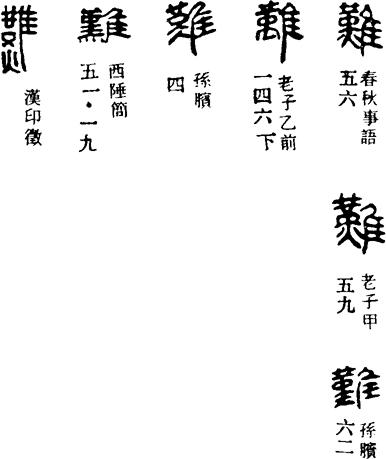 難
春秋事語
五六
難
老子甲
五九
難
孫臏
六二
難
老子乙前
一四六下
難
孫臏
四
難
西陲簡
五一·一九
漢印徵